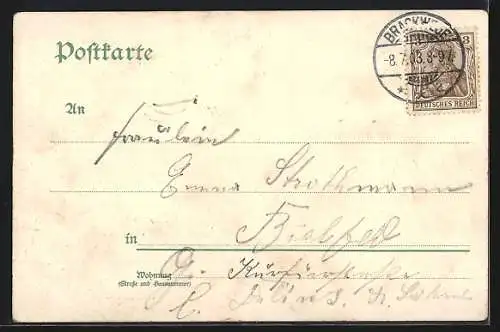 Postkarte
BRACKWEDE
-8.7.03.8-9
3
DEUTSCHES REICH
An
Fräulein
Emma Strothmann
in Bielefeld
Wohnung
(Straße und Hausnummer)
Kurfürstenstraße